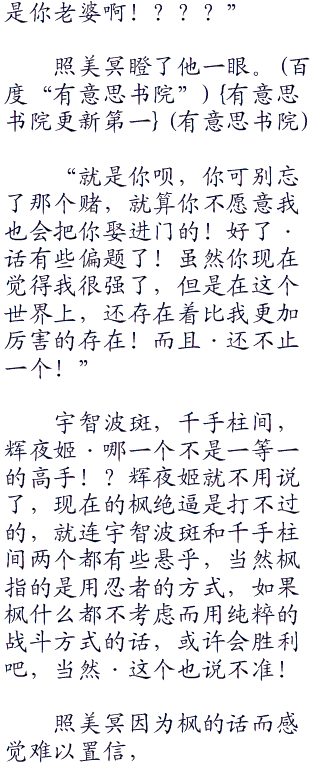 是你老婆啊！？？？”
照美冥瞪了他一眼。(百
度“有意思书院”) {有意思
书院更新第一} (有意思书院)
“就是你呗，你可别忘
了那个赌，就算你不愿意我
也会把你娶进门的！好了·
话有些偏题了！虽然你现在
觉得我很强了，但是在这个
世界上，还存在着比我更加
厉害的存在！而且·还不止
一个！”
宇智波斑，千手柱间，
辉夜姬·哪一个不是一等一
的高手！？辉夜姬就不用说
了，现在的枫绝逼是打不过
的，就连宇智波斑和千手柱
间两个都有些悬乎，当然枫
指的是用忍者的方式，如果
枫什么都不考虑而用纯粹的
战斗方式的话，或许会胜利
吧，当然·这个也说不准！
照美冥因为枫的话而感
觉难以置信，